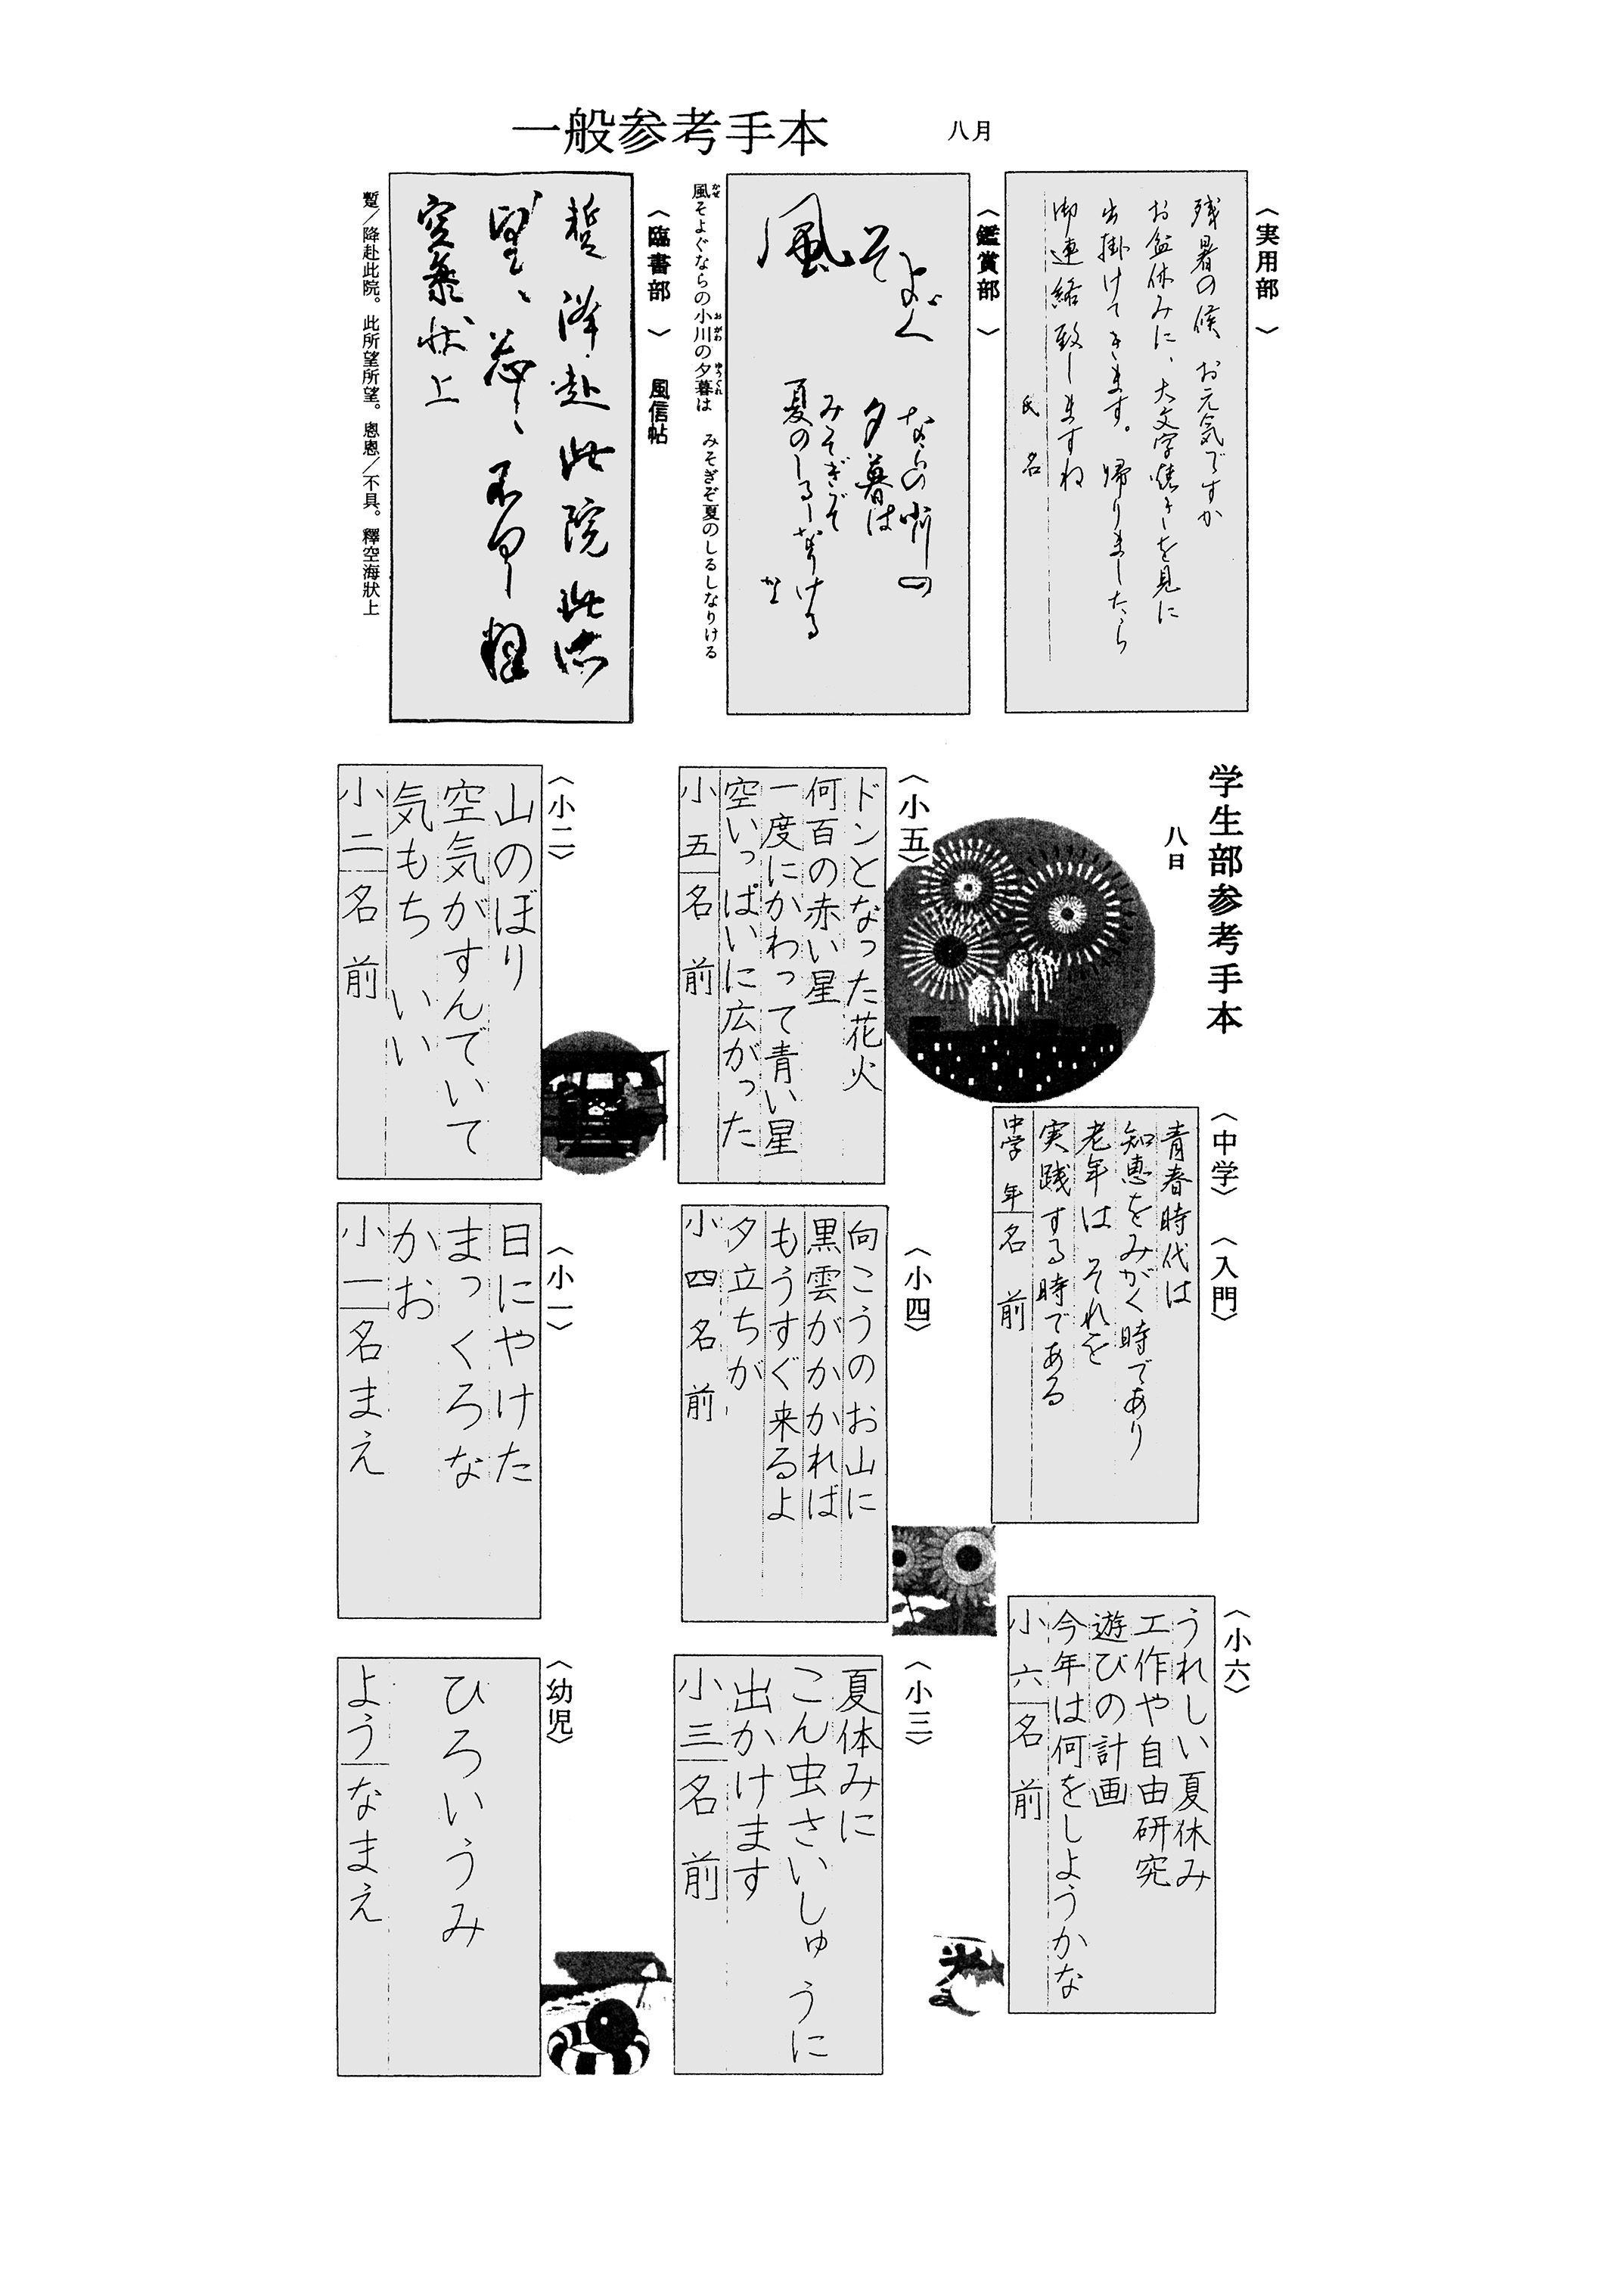 一般参考手本
八月
〈実用部〉
残暑の候、お元気ですか
お盆休みに、大文字焼きを見に
出掛けてきます。帰りましたら
御連絡致しますね
氏名
〈鑑賞部〉
風そよぐ
ならの小川の
夕暮は
みそぎぞ
夏のしるしなりける
風そよぐならの小川の夕暮は　みそぎぞ夏のしるしなりける
かぜ
おがわ
ゆうぐれ
〈臨書部〉　風信帖
暫降赴此院此所
望々怱々不具釋
空海状上
蹔／降赴此院。此所望所望。悤悤／不具。釋空海狀上
学生部参考手本
八日
〈中学〉〈入門〉
青春時代は
知恵をみがく時であり
老年は それを
実践する時である
中学 年 名前
〈小六〉
うれしい夏休み
工作や自由研究
遊びの計画
今年は何をしようかな
小六 名前
〈小五〉
ドンとなった花火
何百の赤い星
一度にかわって青い星
空いっぱいに広がった
小五 名前
〈小四〉
向こうのお山に
黒雲がかかれば
もうすぐ来るよ
夕立ちが
小四 名前
〈小三〉
夏休みに
こん虫さいしゅうに
出かけます
小三 名前
〈小二〉
山のぼり
空気がすんでいて
気もち いい
小二 名前
〈小一〉
日にやけた
まっくろな
かお
小一 名まえ
〈幼児〉
ひろいうみ
よう なまえ